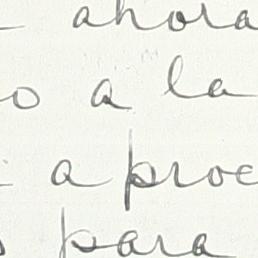 ahora
o a la
a proc
para